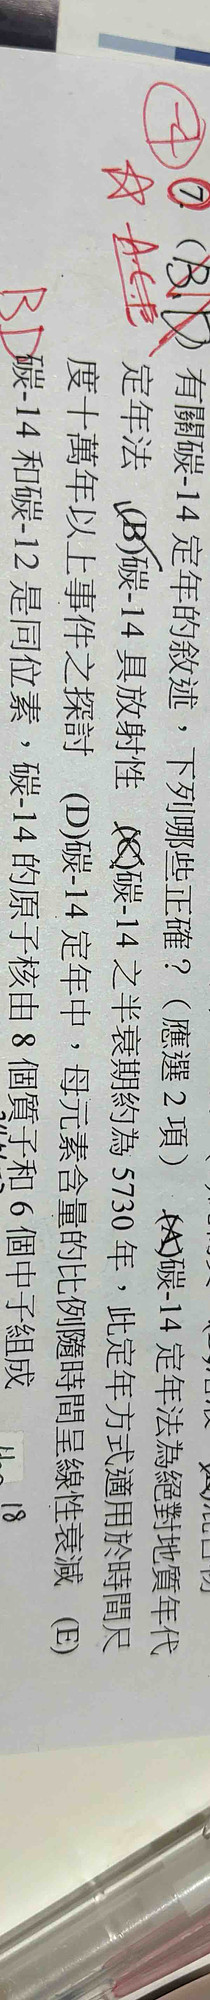 7. (B.D) 有關碳-14 定年的敘述，下列哪些正確？（應選 2 項） (A)碳-14 定年法為絕對地質年代
定年法 (B)碳-14 具放射性 (C)碳-14 之半衰期約為 5730 年，此定年方式適用於時間尺
度十萬年以上事件之探討 (D)碳-14 定年中，母元素含量的比例隨時間呈線性衰減 (E)
碳-14 和碳-12 是同位素，碳-14 的原子核由 8 個質子和 6 個中子組成
B.D
18